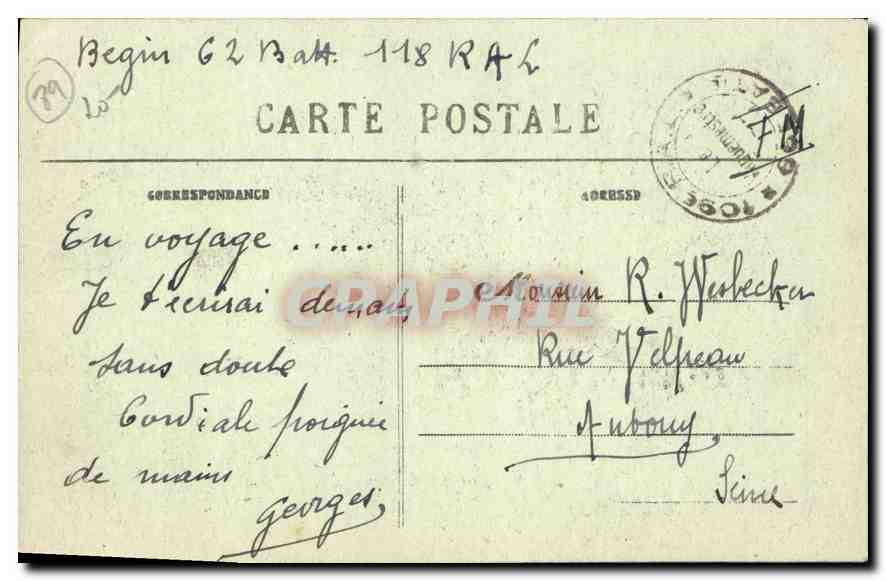 Begin 62 Batt. 118 RAL
89
25
CARTE POSTALE
FM
CORRESPONDANCE
ADRESSE
En voyage .....
Je t'écrirai demain
sans doute
Cordiale poignée
de mains
Georges
Monsieur R. Wesbecker
Rue Velpeau
Antony
Seine
CPAPHIL